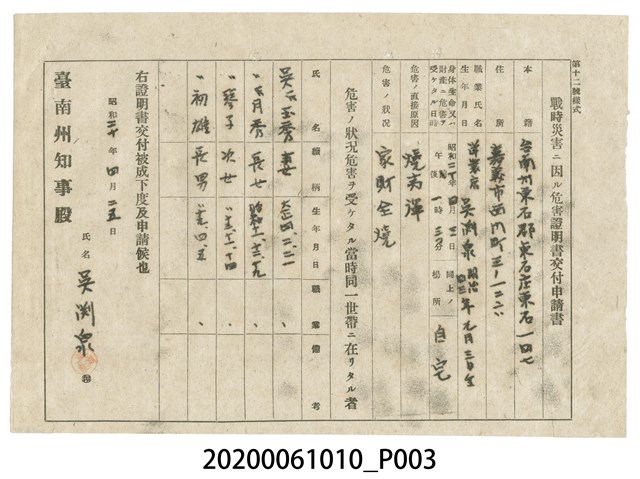 第十二號樣式
戰時災害ニ因ル危害證明書交付申請書
本籍 台南州東石郡東石庄東石一四七
住所 嘉義市西門町三ノ一二二
職業氏名 吳渊泉
生年月日 明治四三年元月三日生
身體生命又ハ財產ニ危害ヲ受ケタル日時 昭和二十年四月三日 午後一時三〇分
同上ノ場所 自宅
危害ノ直接原因 燒夷彈
危害ノ狀況 家財全燒
危害ノ狀況危害ヲ受ケタル當時同一世帶ニ在リタル者
氏名 續柄 生年月日 職業 備考
吳 玉秀 妻 大正四、二、二一
〃 月秀 長女
〃 琴子 次女
〃 初雄 長男
右證明書交付被成下度及申請候也
昭和二十年四月二五日
氏名 吳渊泉
臺南州知事殿
20200061010_P003